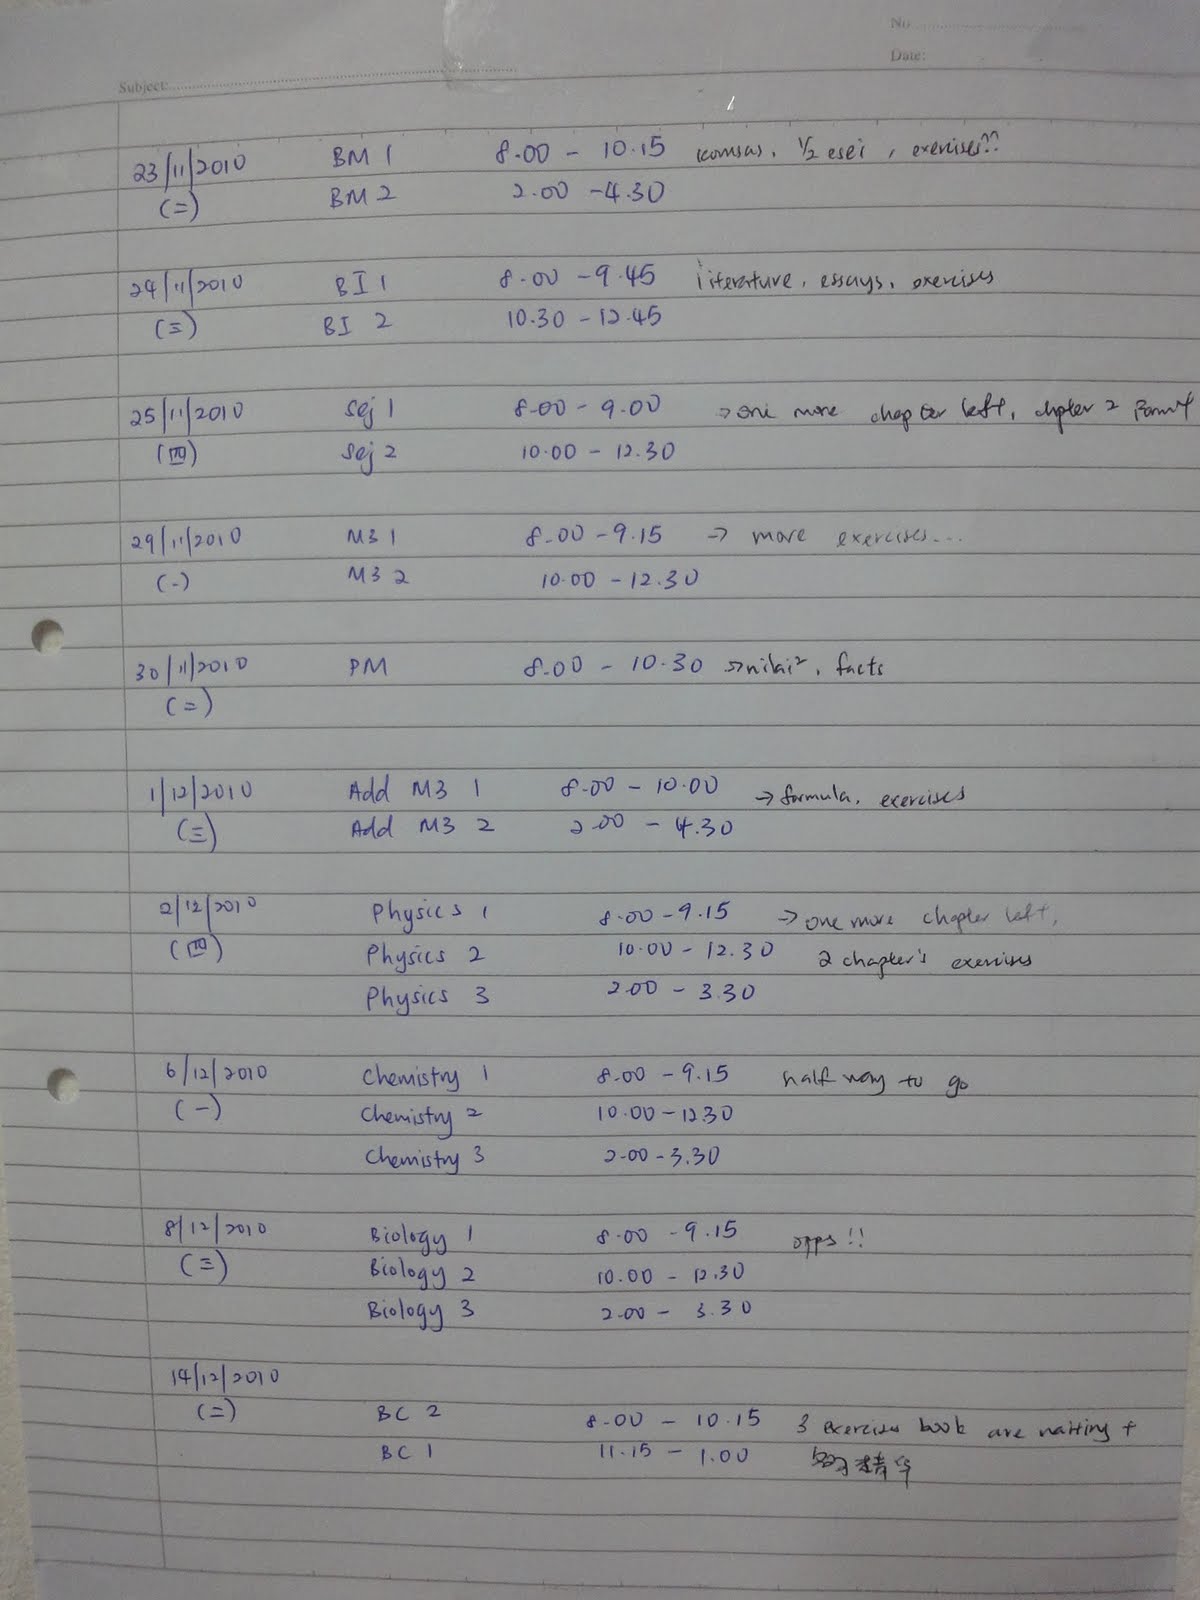 No
Date:
Subject:
23/11/2010 BM 1 8.00 - 10.15 komsas, 1/2 esei, exercises??
(二) BM 2 2.00 - 4.30
24/11/2010 BI 1 8.00 - 9.45 literature, essays, exercises
(三) BI 2 10.30 - 12.45
25/11/2010 Sej 1 8.00 - 9.00 → one more chapter left, chpter 2 Form 4
(四) Sej 2 10.00 - 12.30
29/11/2010 M3 1 8.00 - 9.15 → more exercises...
(一) M3 2 10.00 - 12.30
30/11/2010 PM 8.00 - 10.30 → nilai², facts
(二)
1/12/2010 Add M3 1 8.00 - 10.00 → formula, exercises
(三) Add M3 2 2.00 - 4.30
2/12/2010 Physics 1 8.00 - 9.15 → one more chapter left,
(四) Physics 2 10.00 - 12.30 2 chapter's exercises
Physics 3 2.00 - 3.30
6/12/2010 Chemistry 1 8.00 - 9.15 half way to go
(一) Chemistry 2 10.00 - 12.30
Chemistry 3 2.00 - 3.30
8/12/2010 Biology 1 8.00 - 9.15 opps!!
(三) Biology 2 10.00 - 12.30
Biology 3 2.00 - 3.30
14/12/2010
(二) BC 2 8.00 - 10.15 3 exercises book are waiting +
BC 1 11.15 - 1.00 精华